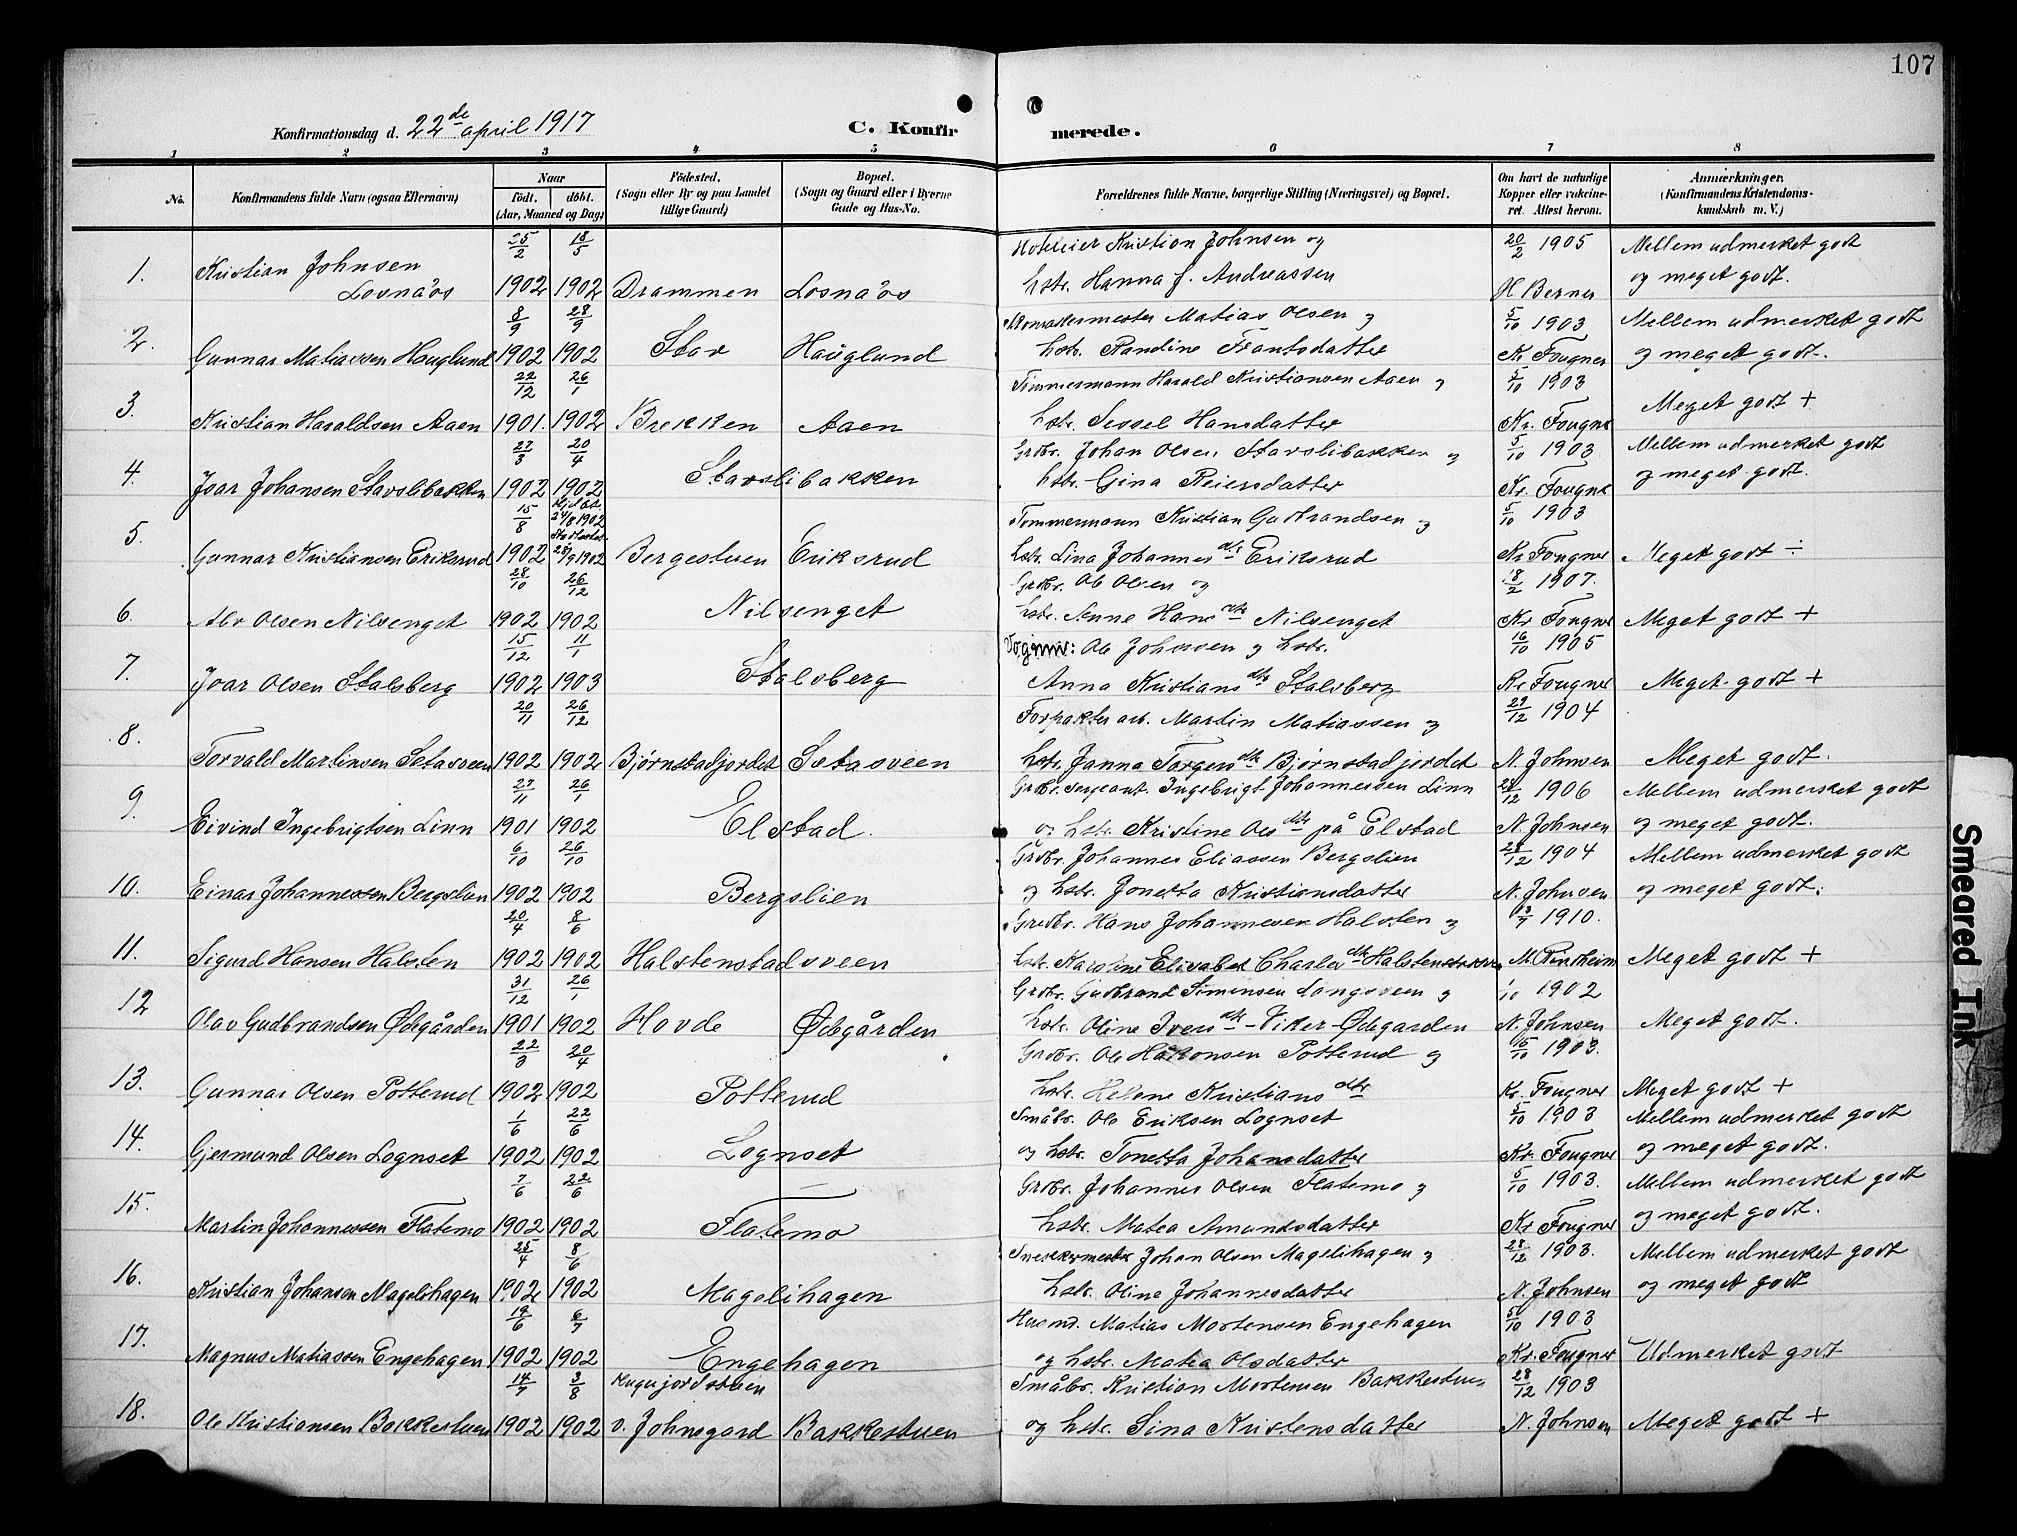 107
Konfirmationsdag d. 22de april 1917 C. Konfir merede.
1 2 3 4 5 6 7 8
No. Konfirmandens fulde Navn (ogsaa Efternavn) Naar født. døbt. (Aar, Maaned og Dag) Fødested. (Sogn eller By og paa Landet tillige Gaard) Bopæl. (Sogn og Gaard eller i Byerne Gade og Hus-No. Forældrenes fulde Navne, borgerlige Stilling (Næringsvei) og Bopæl. Om havt de naturlige Kopper eller vakcineret. Attest herom. Anmærkninger. (Konfirmandens Kristendomskundskab m. V.)
25/2 18/5 Kristian Johnsen og 20/2 1905 Mellem udmerket godt
1. Kristian Johnsen Losnaös 1902 1902 Drammen Losnaös hstr. Hanna J. Andreassen H Berner og meget godt.
8/9 28/9 Matias Olsen og 5/10 1903 Mellem udmerket godt
2. Gunnar Matiassen Hauglund 1902 1902 Stav Hauglund hstr. Randine Frantsdatter Kr Fougner og meget godt.
22/12 26/1 Timmermann Harald Kristiansen Aaen og 5/10 1903
3. Kristian Haraldsen Aaen 1901. 1902 Brekken Aaen hstr. Sessel Hansdatter Kr. Fougne Meget godt +
27/3 20/4 Grdbr. Johan Olsen Stavslibakken og 5/10 1903 Mellem udmerket godt
4. Joar Johansen Stavslibakken 1902 1902 Stavslibakken hstr. Gina Reiersdatter Kr. Fougne og meget godt.
15/8 Hjdbt. 24/8 1902 Tømmermann Kristian Gudbrandsen og 5/10 1903
5. Gunnar Kristiansen Eriksrud 1902 28/9 1902 Bergestuen Eriksrud hstr. Lina Johannes dtr Eriksrud Kr Fougner Meget godt ÷
28/10 26/12 Grdbr. Ole Olsen og 18/2 1907.
6. Alv Olsen Nilsenget 1902 1902 Nilsenget hstr. Anne Hans dtr Nilsenget Kr Fougner Meget godt +
15/12 11/1 Ole Johnsen og hstr. 16/10 1905
7. Joar Olsen Stalsberg 1902 1903 Stalsberg Anna Kristians dtr Stalsberg Kr Fougner Meget godt +
20/11 26/12 Forpakter arb. Martin Matiassen og 29/12 1904
8. Torvald Martinsen Setasveen 1902 1902 Bjørnstadjordet Setasveen hstr. Janna Torgers dtr Bjørnstadjordet N. Johnsen Meget godt.
27/11 26/1 Grdbr. Sergeant. Ingebrigt Johannessen Linn 28/12 1906 Mellem udmerket godt
9. Eivind Ingebrigtsen Linn 1901 1902 Elstad. og hstr. Kristine Ols dtr på Elstad N. Johnsen og meget godt.
6/10 26/10 Grdbr. Johannes Eliassen Bergslien 28/12 1904 Mellem udmerket godt
10. Einar Johannessen Bergslien 1902 1902 Bergslien og hstr. Jonetta Kristiansdatter N. Johnsen og meget godt.
20/4 8/6 Grdbr. Hans Johannesen Halsten og 1910.
11. Sigurd Hansen Halsten 1902 1902 Halstenstadsveen hstr. Karoline Elisabet Charles dtr Meget godt +
31/12 26/1 Grdbr. Gudbrand Simensen Langsveen og 1/10 1902
12 Olav Gudbrandsen Ødegården 1901 1902 Hovde Ødegården hstr. Oline Ivers dtr Viker-Ødegarden N. Johnsen Meget godt.
22/3 20/4 Grdbr. Ole Håkonsen Potterud og 1903.
13. Gunnar Olsen Potterud 1902 1902 Potterud hstr. Helene Kristians dtr Kr. Fougner Meget godt +
1/6 22/6 Småbr. Ole Eriksen Lognset 5/10 1903 Mellem udmerket godt
14. Gjermund Olsen Lognset 1902 1902 Lognset og hstr. Tonetta Johansdatter Kr. Fougner og meget godt.
7/6 22/6 Grdbr. Johannes Olsen Flatemo og 5/10 1903. Mellem udmerket godt
15. Martin Johannessen Flatemo 1902 1902 Flatemo hstr. Matea Amundsdatter Kr Fougner og meget godt.
25/4 8/6 Snekkermester Johan Olsen Magelihagen og 28/12 1903. Mellem udmerket godt
16. Kristian Johansen Magelihagen 1902 1902 Magelihagen hstr. Oline Johannesdatter N. Johnsen og meget godt
19/6 6/7 Husmd. Matias Mortensen Engehagen 5/10 1903
17. Magnus Matiassen Engehagen 1902 1902 Engehagen og hstr. Matea Olsdatter Kr. Fougner Udmerket godt
14/7 3/8 Småbr. Kristian Mortensen Bakkestuen 28/12 1903
18. Ole Kristiansen Bakkestuen 1902 1902 v. Johnsgard Bakkestuen og hstr. Sina Kristensdatter N. Johnsen Meget godt +
Smeared Ink